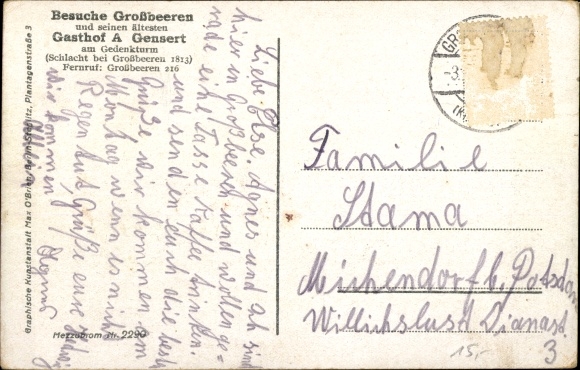 Besuche Großbeeren
und seinen ältesten
Gasthof A Gensert
am Gedenkturm
(Schlacht bei Großbeeren 1813)
Fernruf: Großbeeren 216
Liebe Agnes und ich sind
hier in Großbeeren und wollen ge=
rade eine Tasse Kaffee trinken.
und senden Euch die besten
Grüße wir kommen am
Montag wenn es nicht
Regen tut, Grüße eure
wir kommen
Graphische Kunstanstalt Max O'Brien, Berlin-Steglitz, Plantagenstraße 3
Mezzochrom Nr. 2290
GR
-3.
Familie
Stama
Michendorf b. Potsdam
Willichslust Dianast.
15,-
3